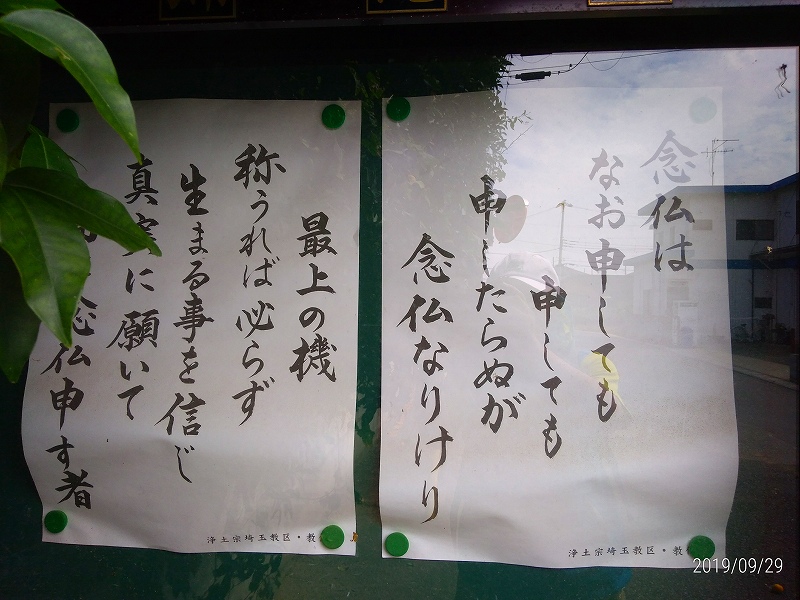 念仏は
なお申しても
申しても
申したらぬが
念仏なりけり
浄土宗埼玉教区・教
最上の機
称うれば必らず
生まる事を信じ
真実に願いて
念仏申す者
浄土宗埼玉教区・教
2019/09/29